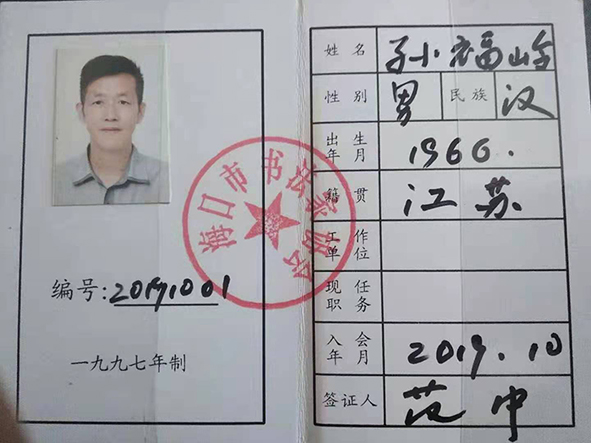 编号:20191001
一九九七年制
海口市书法家协会
姓名 孙福
性别 男 民族 汉
出生年月 1966.
籍贯 江苏
工作单位
现任职务
入会年月 2019.10
签证人 范中